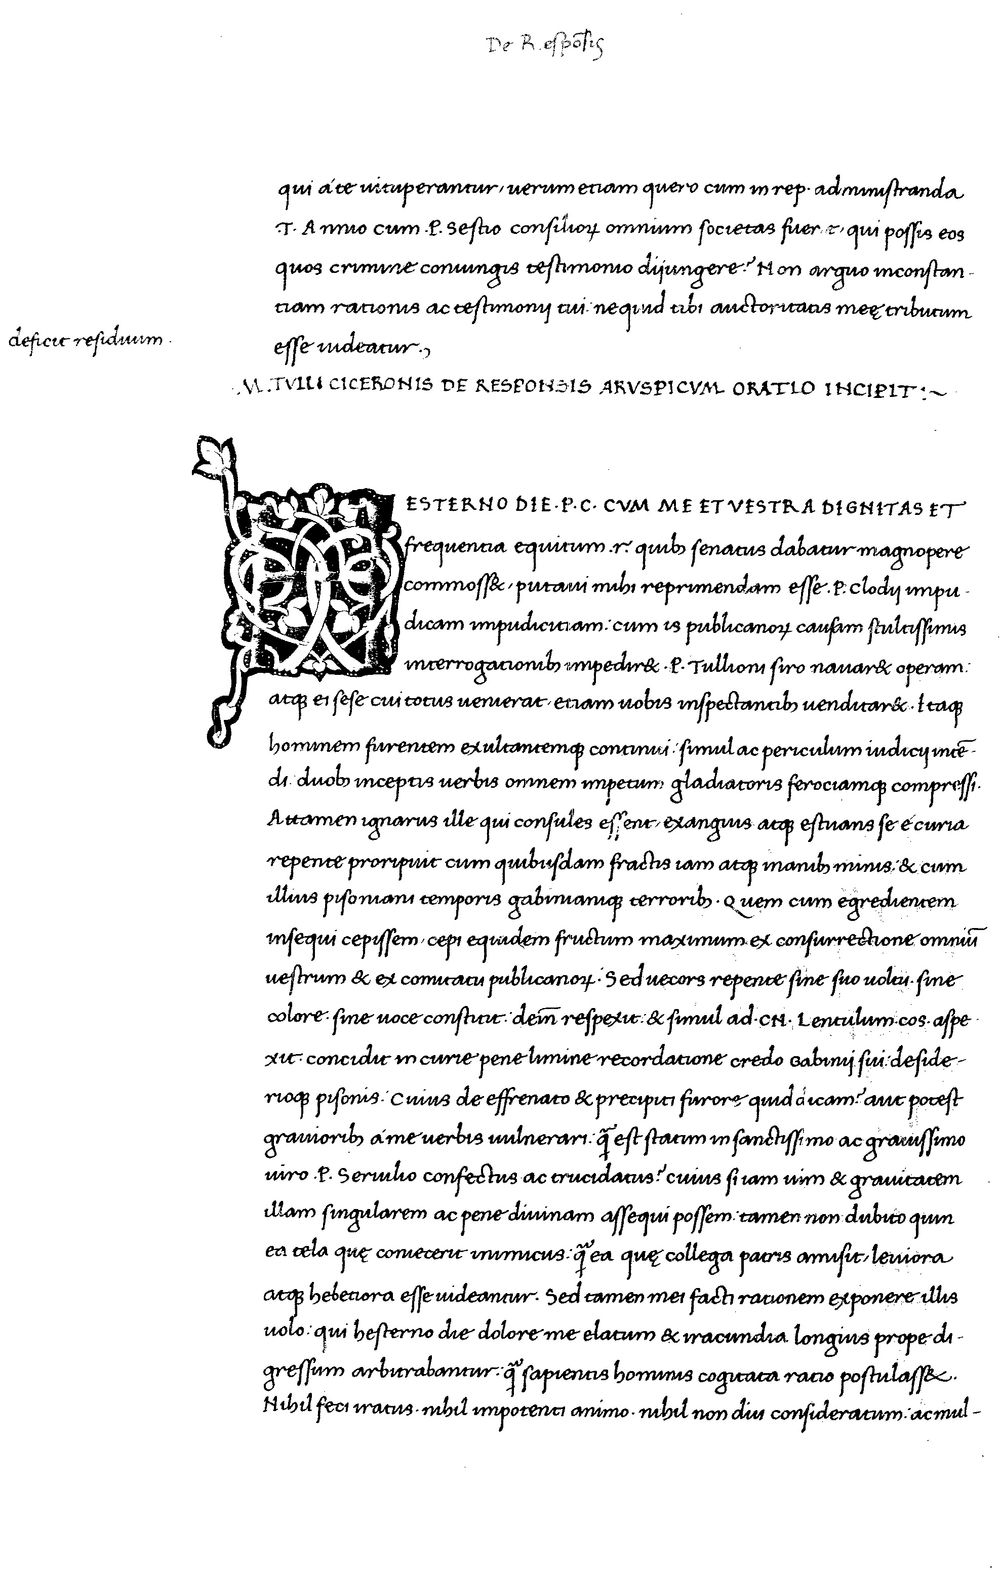 De R. espōsis
qui a te uituperantur, uerum etiam quero cum in rep. administranda
T. Annio cum .P. Sestio consilioꝝ omnium societas fuerit, qui possis eos
quos crimine coniungis testimonio dijungere? Non arguo inconstan-
tiam rationis ac testimonij tui: nequid tibi auctoritatis meę tributum
deficit residuum.
esse uideatur.
.M. TVLLI CICERONIS DE RESPONSIS ARVSPICVM ORATIO INCIPIT:~
ESTERNO DIE .P.C. CVM ME ET VESTRA DIGNITAS ET
frequentia equitum .r. quibꝫ senatus dabatur magnopere
commoss&, putaui mihi reprimendam esse .P. Clodij impu-
dicam impudicitiam: cum is publicanoꝝ causam stultissimis
interrogationibꝫ impedir& .P. Tullioni siro nauar& operam:
atqꝫ ei sese cui totus uenierat, etiam uobis inspectantibꝫ uenditar&. Itaqꝫ
hominem furentem exultantemqꝫ continui: simul ac periculum iudicij intē-
di: duobꝫ inceptis uerbis omnem impetum gladiatoris ferociamqꝫ compressi.
Attamen ignarus ille qui consules essent, exanguis atqꝫ estuans se e curia
repente proripuit cum quibusdam fractis iam atqꝫ inanibꝫ minis: & cum
illius pisoniani temporis gabinianiqꝫ terroribꝫ. Quem cum egredientem
insequi cepissem, cepi equidem fructum maximum ex consurrectione omniū
uestrum & ex comitatu publicanoꝝ: Sed uecors repente sine suo uoltu. sine
colore. sine uoce constitit: deīn respexit: & simul ad .CN. Lentulum .cos. aspe
xit: concidit in curie pene limine recordatione credo Gabinij sui: deside-
rioqꝫ pisonis. Cuius de effrenato & precipiti furore quid dicam? aut potest
grauioribꝫ a me uerbis uulnerari: q̄ est statim in sanctissimo ac grauissimo
uiro .P. Seruilio confectus ac trucidatus? cuius si iam uim & grauitatem
illam singularem ac pene diuinam assequi possem: tamen non dubito quin
ea tela quę coniecerit inimicus: q̄ ea quę collega patris amisit, leuiora
atqꝫ hebetiora esse uideantur. Sed tamen mei facti rationem exponere illis
uolo: qui hesterno die dolore me elatum & iracundia longius prope di-
gressum arbitrabantur: q̄ sapientis hominis cogitata ratio postulass&.
Nihil feci iratus. nihil impotenti animo. nihil non diu consideratum: ac mul-